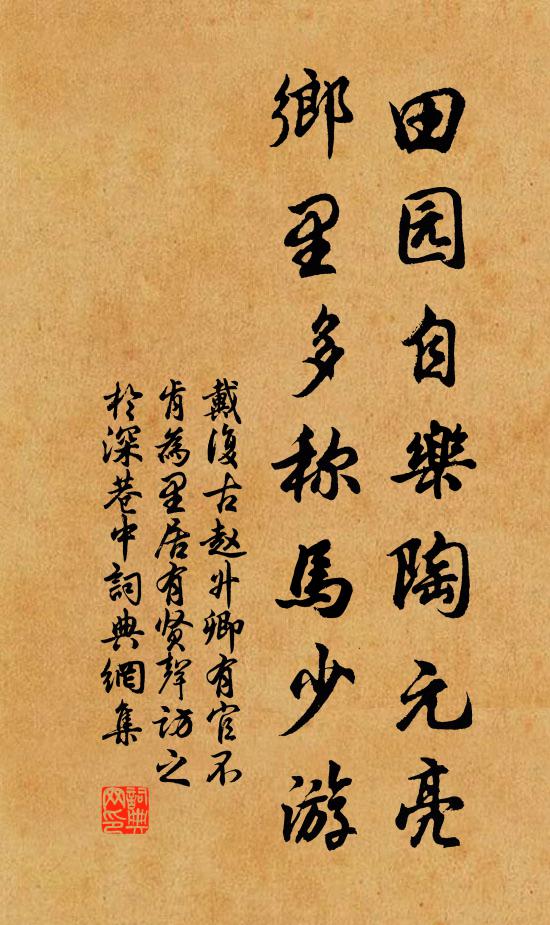 田园自樂陶元亮
鄉里多称馬少游
戴復古赵升卿有官不
肯為里居有贤聲访之
於深巷中詞典網集
詞典网印